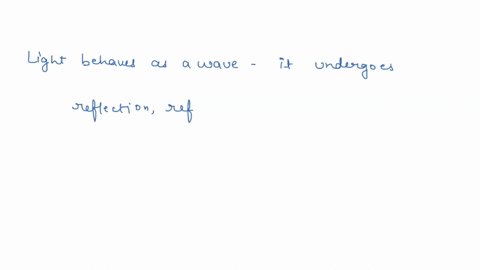 Light behaves as a wave - it undergoes
reflection, ref